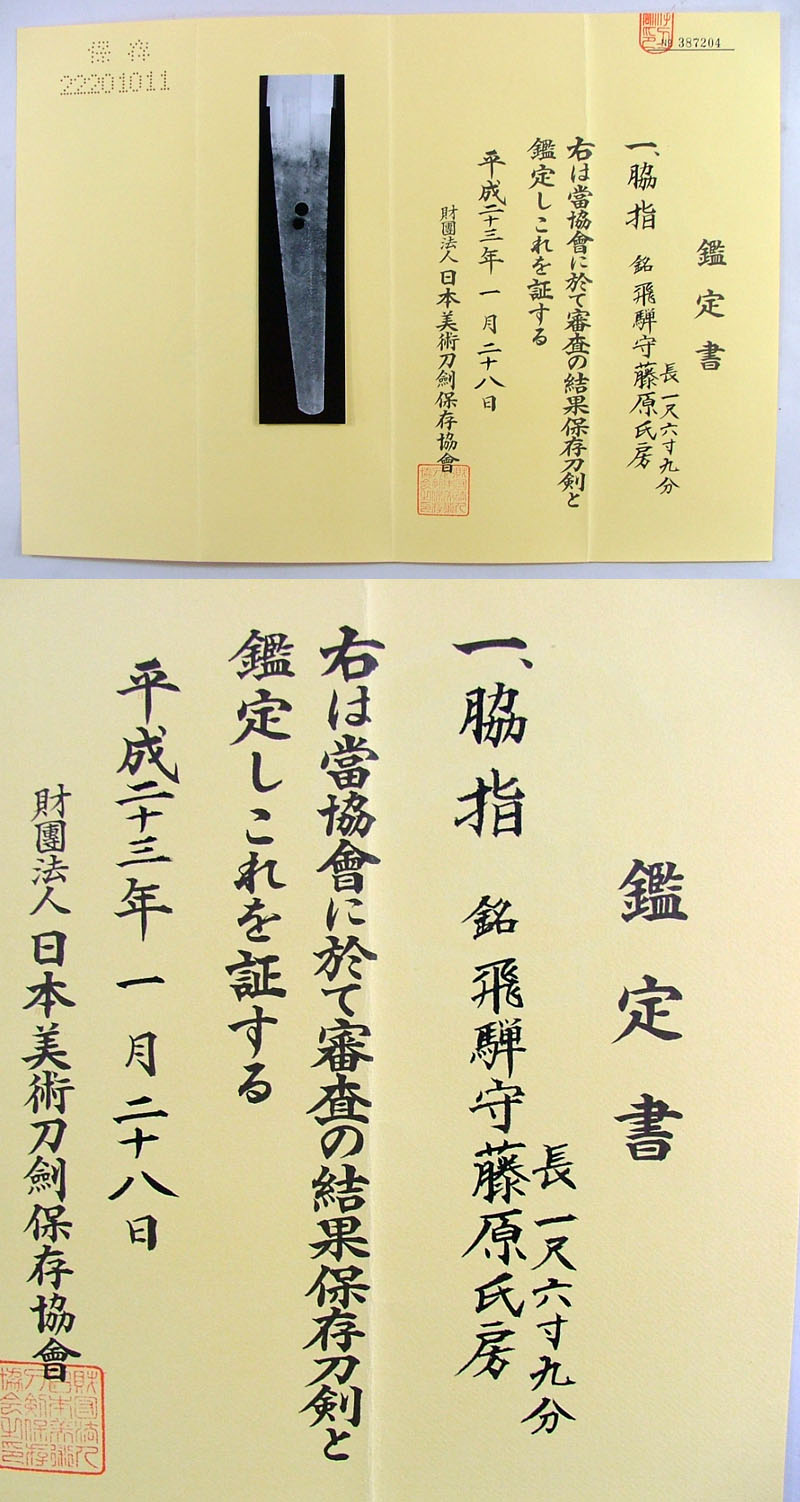 保存
22201011
№ 387204
鑑定書
一、脇指 銘 飛騨守藤原氏房
長一尺六寸九分
右は當協會に於て審査の結果保存刀剣と
鑑定しこれを証する
平成二十三年一月二十八日
財團法人日本美術刀劍保存協會
鑑定書
一、脇指 銘 飛騨守藤原氏房
長一尺六寸九分
右は當協會に於て審査の結果保存刀剣と
鑑定しこれを証する
平成二十三年一月二十八日
財團法人日本美術刀劍保存協會